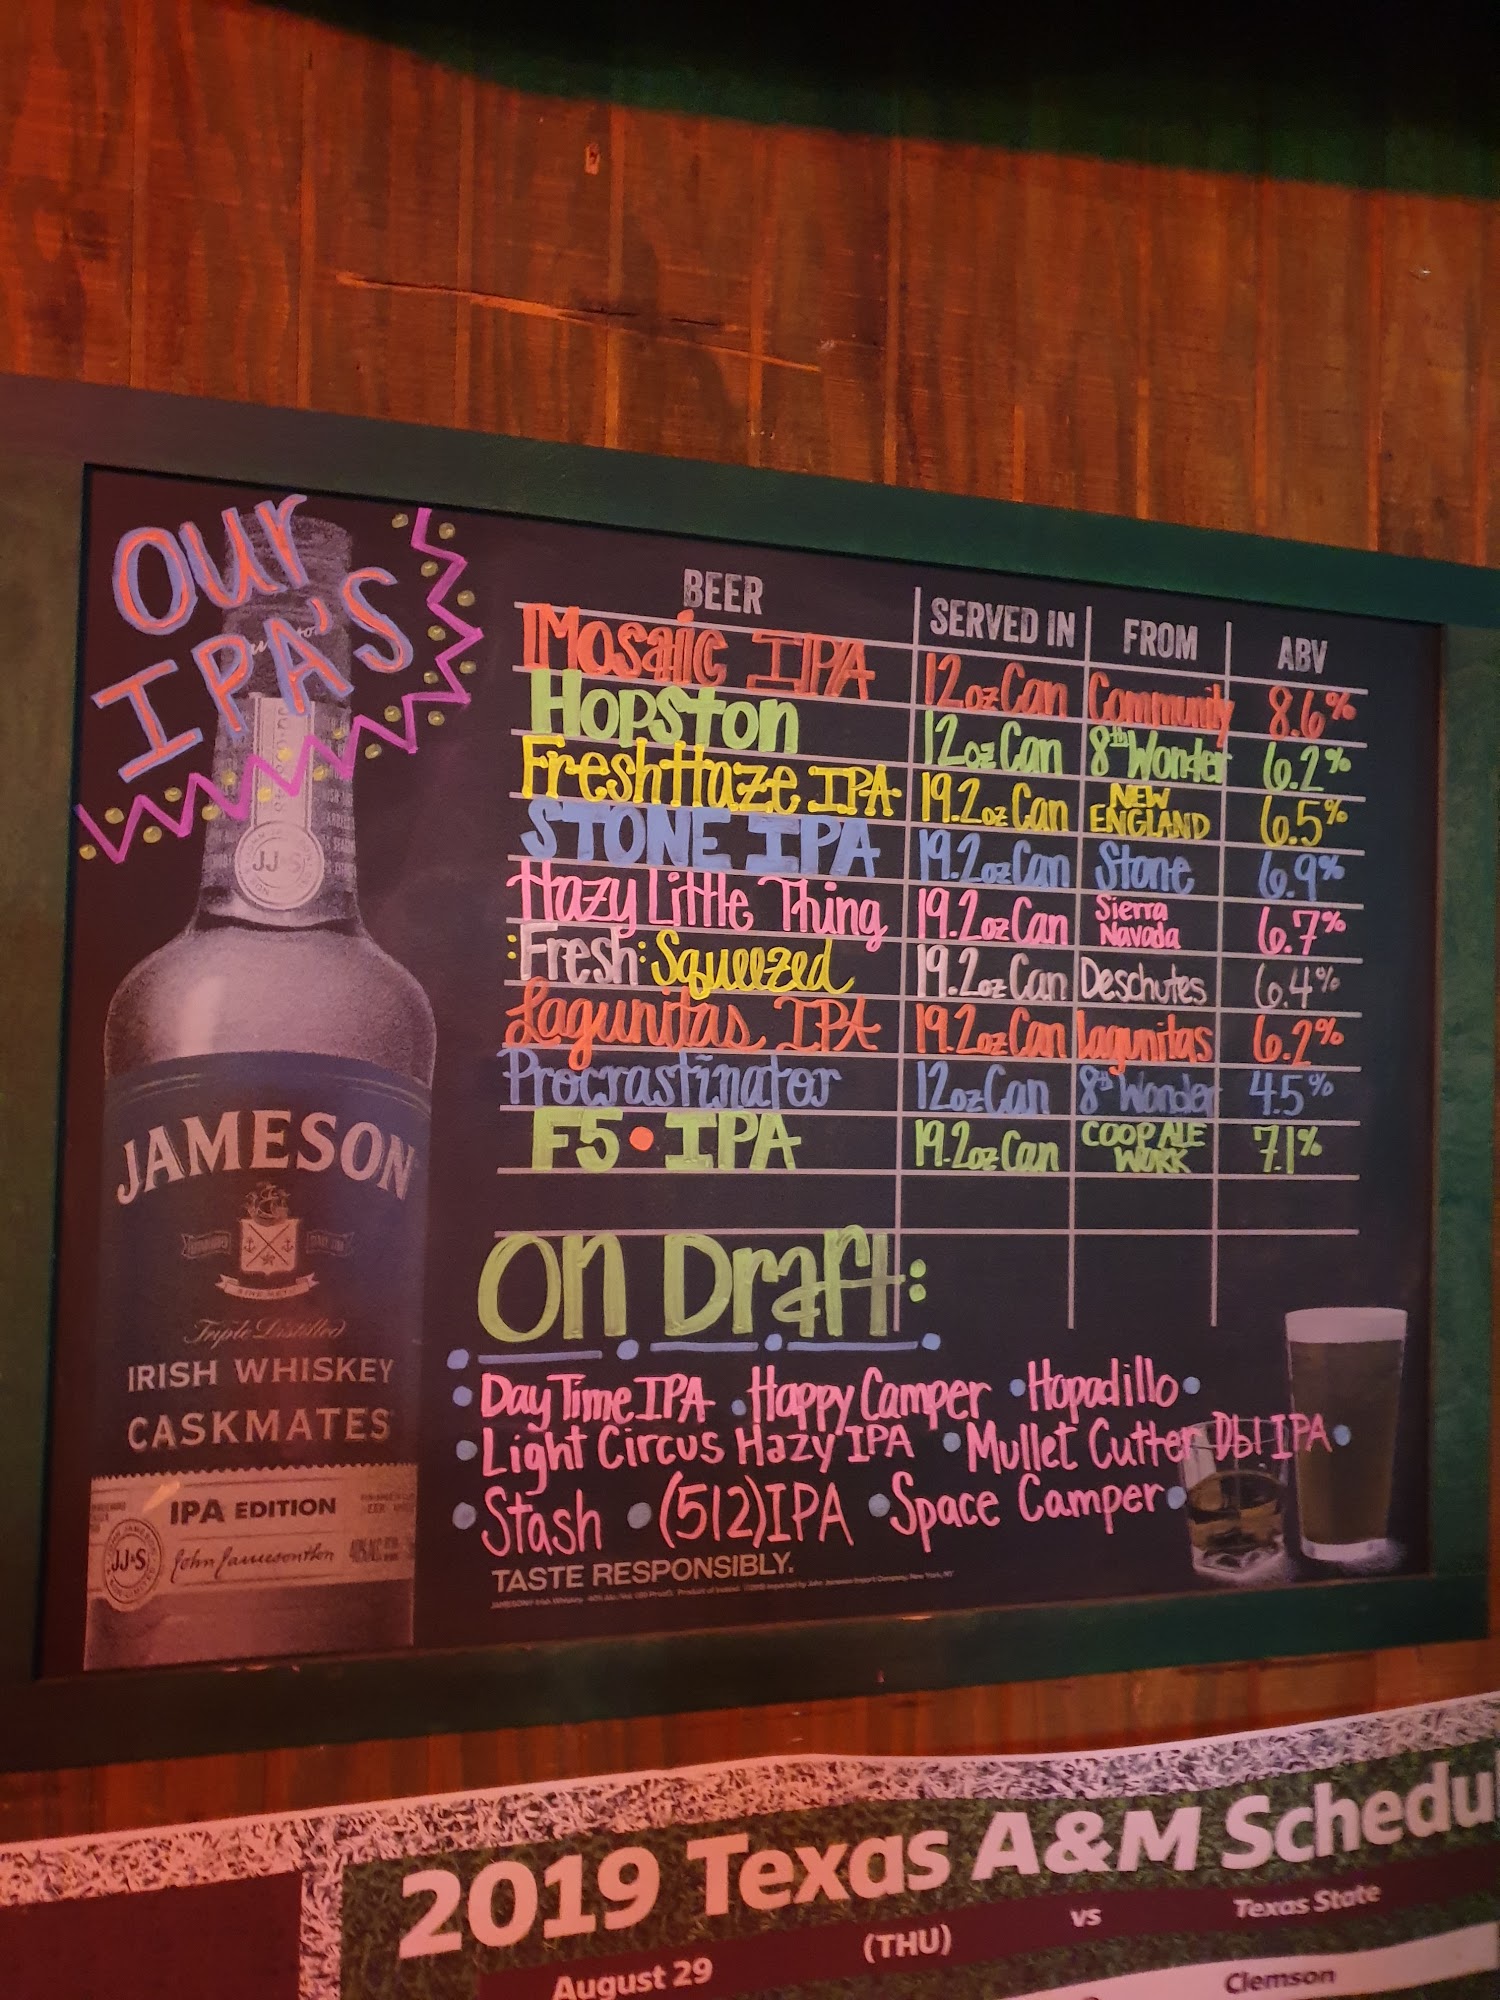 Our
IPA'S
BEER SERVED IN FROM ABV
Mosaic IPA 12oz Can Community 8.6%
Hopston 12oz Can 8th Wonder 6.2%
Fresh Haze IPA 19.2oz Can NEW ENGLAND 6.5%
STONE IPA 19.2oz Can Stone 6.9%
Hazy Little Thing 19.2oz Can Sierra Navada 6.7%
:Fresh: Squeezed 19.2oz Can Deschutes 6.4%
Lagunitas IPA 19.2oz Can Lagunitas 6.2%
Procrastinator 12oz Can 8th Wonder 4.5%
F5 • IPA 19.2oz Can COOP ALE WORK 7.1%
On Draft:
• Day Time IPA • Happy Camper • Hopadillo •
• Light Circus Hazy IPA • Mullet Cutter Dbl IPA •
• Stash • (512) IPA • Space Camper •
TASTE RESPONSIBLY.
JJ&S
JAMESON
SINE METU
Triple Distilled
IRISH WHISKEY
CASKMATES
IPA EDITION
JJ&S
John Jameson & Son
2019 Texas A&M Schedul
August 29 (THU) vs Texas State
Clemson